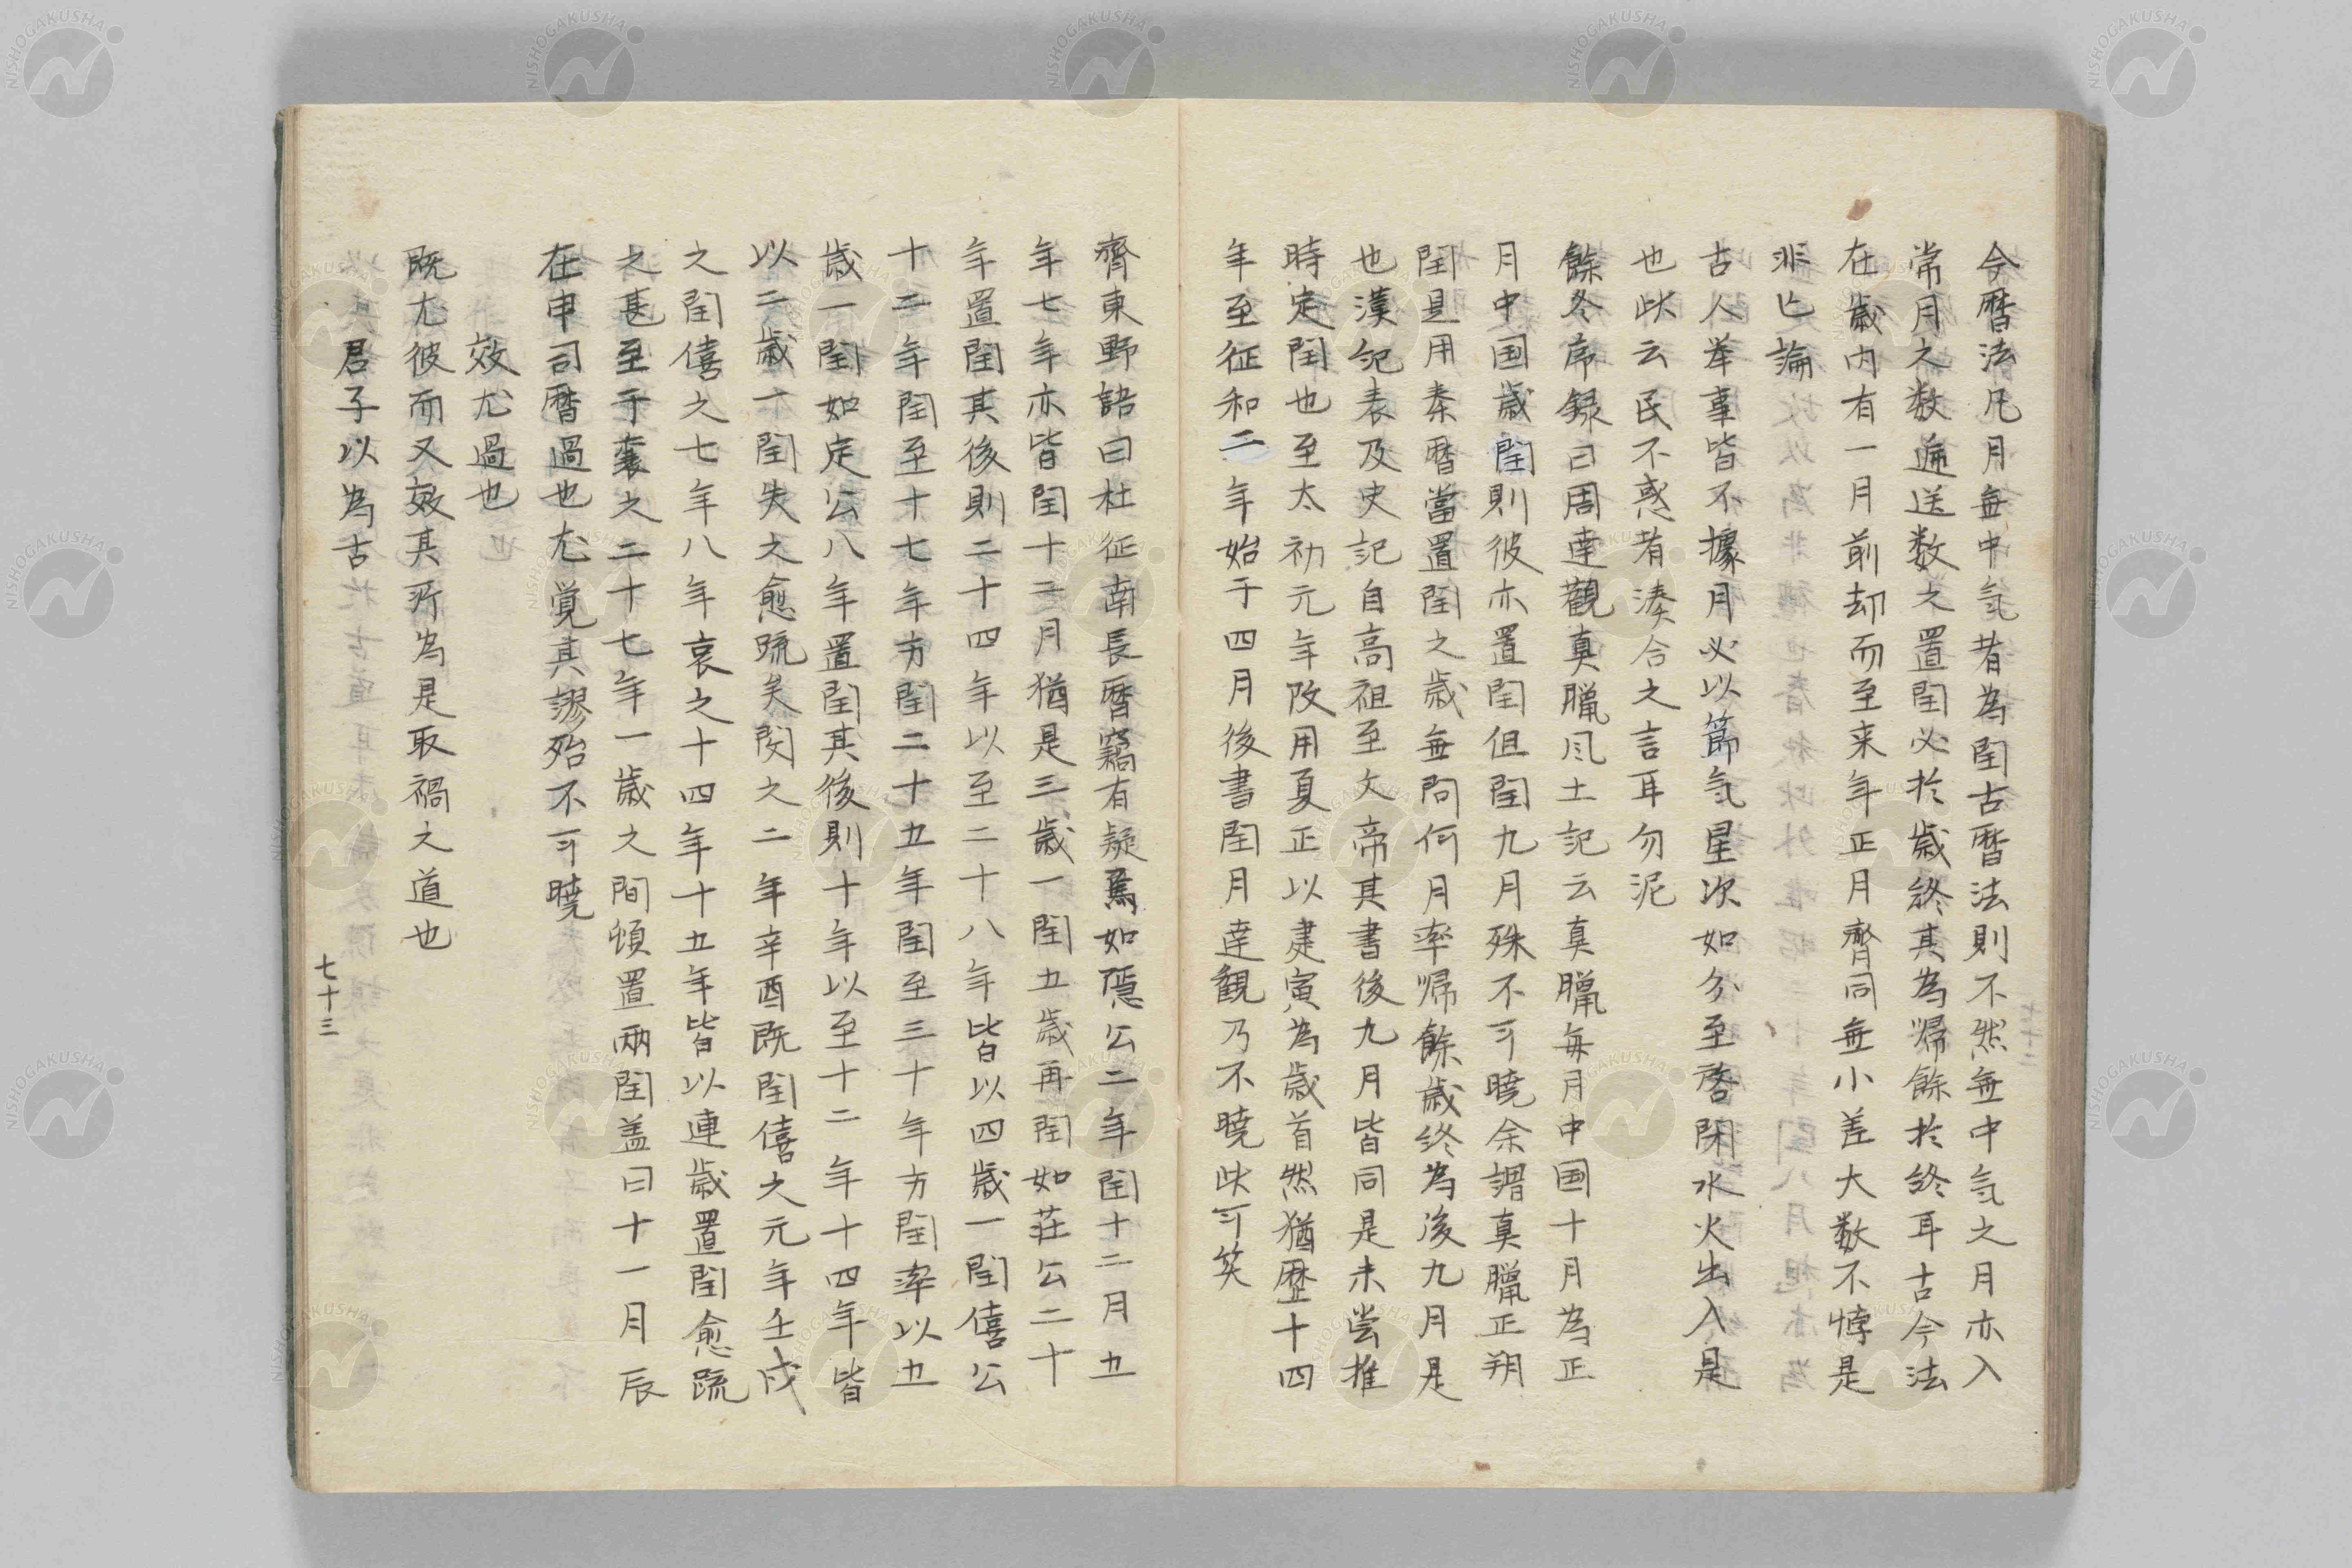 今暦法凡月無中気者為閏古暦法則不然無中気之月亦入
常月之数逓送数之置閏必於歳終其為帰餘於終耳古今法
在歳内有一月前却而至来年正月齊同無小差大数不悖是
非匕論
古人挙事皆不據月必以節気星次如分至啓閉水火出入是
也此云民不惑者湊合之言耳勿泥
餘冬序録曰周達観真臘风土記云真臘毎月中国十月為正
月中国歳閏則彼亦置閏但閏九月殊不可暁余謂真臘正朔
閏是用秦暦當置閏之歳無問何月率帰餘歳終為後九月是
也漢紀表及史記自高祖至文帝其書後九月皆同是未嘗推
時定閏也至太初元年改用夏正以建寅為歳首然猶歴十四
年至征和二年始于四月後書閏月達観乃不暁此可笑
齊東野語曰杜征南長暦竊有疑焉如隠公二年閏十二月五
年七年亦皆閏十二月猶是三歳一閏五歳再閏如荘公二十
年置閏其後則二十四年以至二十八年皆以四歳一閏僖公
十二年閏至十七年方閏二十五年閏至三十年方閏率以五
歳一閏如定公八年置閏其後則十年以至十二年十四年皆
以二歳一閏失之愈疏矣閔之二年辛酉既閏僖之元年壬戌
之閏僖之七年八年哀之十四年十五年皆以連歳置閏愈疏
之甚至于襄之二十七年一歳之間頓置両閏盖曰十一月辰
在申司暦過也尤覚其謬殆不可暁
效尤過也
既尤彼而又效其所為是取禍之道也
君子以為古
七十三
NISHOGAKUSHA